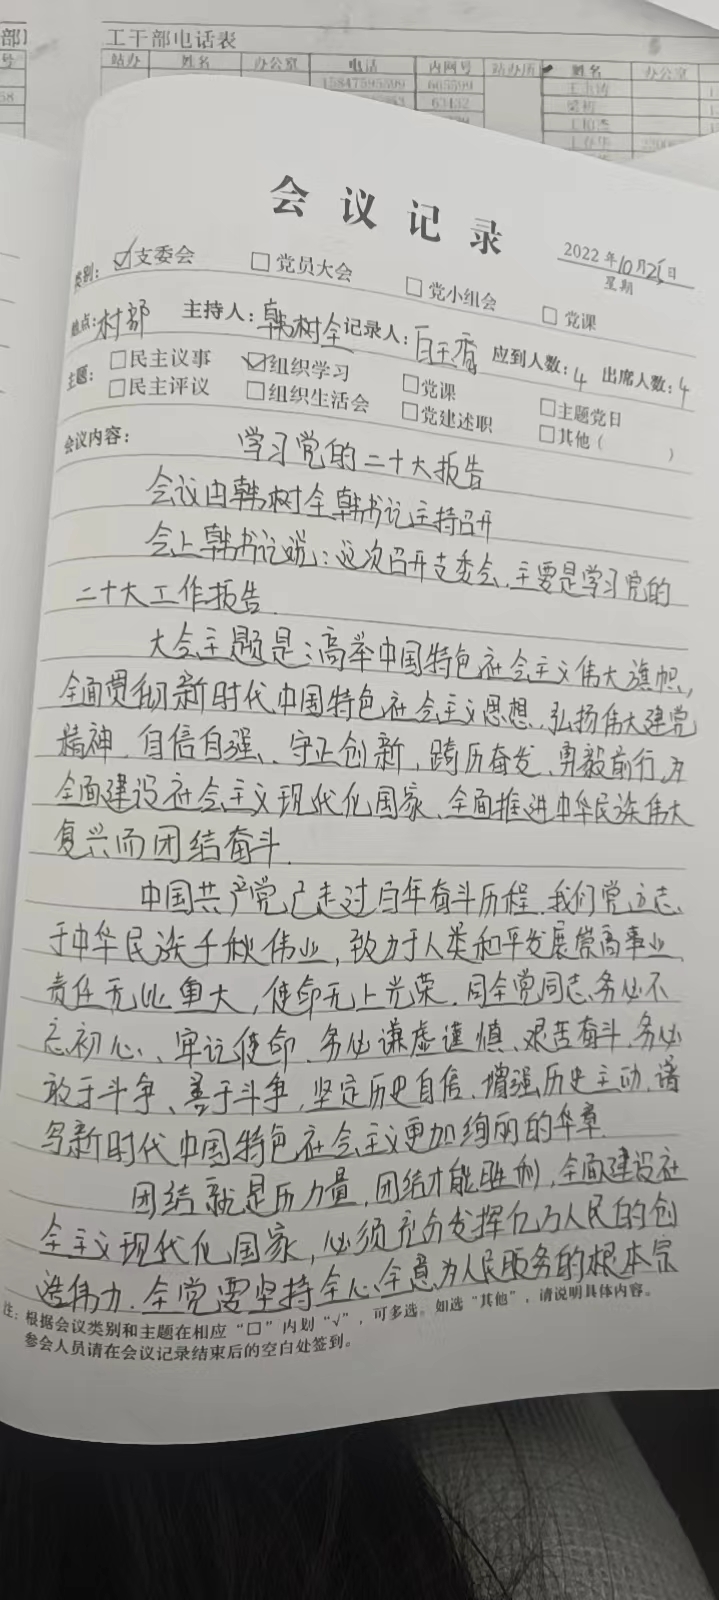 部
号
58
工干部电话表
站办 姓名 办公室 电话 内网号 站办所 姓名 办公室
15847595599 665599
63432
会议记录
2022年10月25日
星期
类别: ☑支委会 □党员大会 □党小组会 □党课
地点:村部 主持人:韩树全 记录人:白玉香 应到人数:4 出席人数:4
主题: □民主议事 ☑组织学习 □党课 □主题党日
□民主评议 □组织生活会 □党建述职 □其他( )
会议内容: 学习党的二十大报告
会议由韩树全韩书记主持召开
会上韩书记说:这次召开支委会,主要是学习党的
二十大工作报告.
大会主题是:高举中国特色社会主义伟大旗帜,
全面贯彻新时代中国特色社会主义思想、弘扬伟大建党
精神、自信自强、守正创新,踔厉奋发、勇毅前行,为
全面建设社会主义现代化国家、全面推进中华民族伟大
复兴而团结奋斗.
中国共产党已走过百年奋斗历程.我们党立志
于中华民族千秋伟业,致力于人类和平发展崇高事业,
责任无比重大,使命无上光荣.同全党同志务必不
忘初心、牢记使命、务必谦虚谨慎、艰苦奋斗、务必
敢于斗争、善于斗争,坚定历史自信、增强历史主动,谱
写新时代中国特色社会主义更加绚丽的华章.
团结就是历力量,团结才能胜利,全面建设社
会主义现代化国家,必须充分发挥亿万人民的创
造伟力.全党要坚持全心全意为人民服务的根本宗
注:根据会议类别和主题在相应“□”内划“√”,可多选。如选“其他”,请说明具体内容。
参会人员请在会议记录结束后的空白处签到。